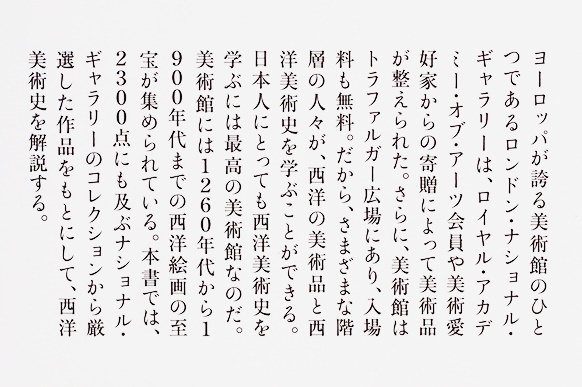 ヨーロッパが誇る美術館のひと
つであるロンドン・ナショナル・
ギャラリーは、ロイヤル・アカデ
ミー・オブ・アーツ会員や美術愛
好家からの寄贈によって美術品
が整えられた。さらに、美術館は
トラファルガー広場にあり、入場
料も無料。だから、さまざまな階
層の人々が、西洋の美術品と西
洋美術史を学ぶことができる。
日本人にとっても西洋美術史を
学ぶには最高の美術館なのだ。
美術館には1260年代から1
900年代までの西洋絵画の至
宝が集められている。本書では、
2300点にも及ぶナショナル・
ギャラリーのコレクションから厳
選した作品をもとにして、西洋
美術史を解説する。